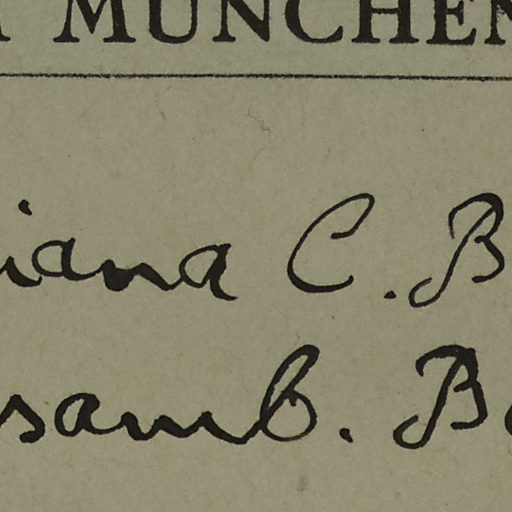 MÜNCHEN
iana C. B
samb. B